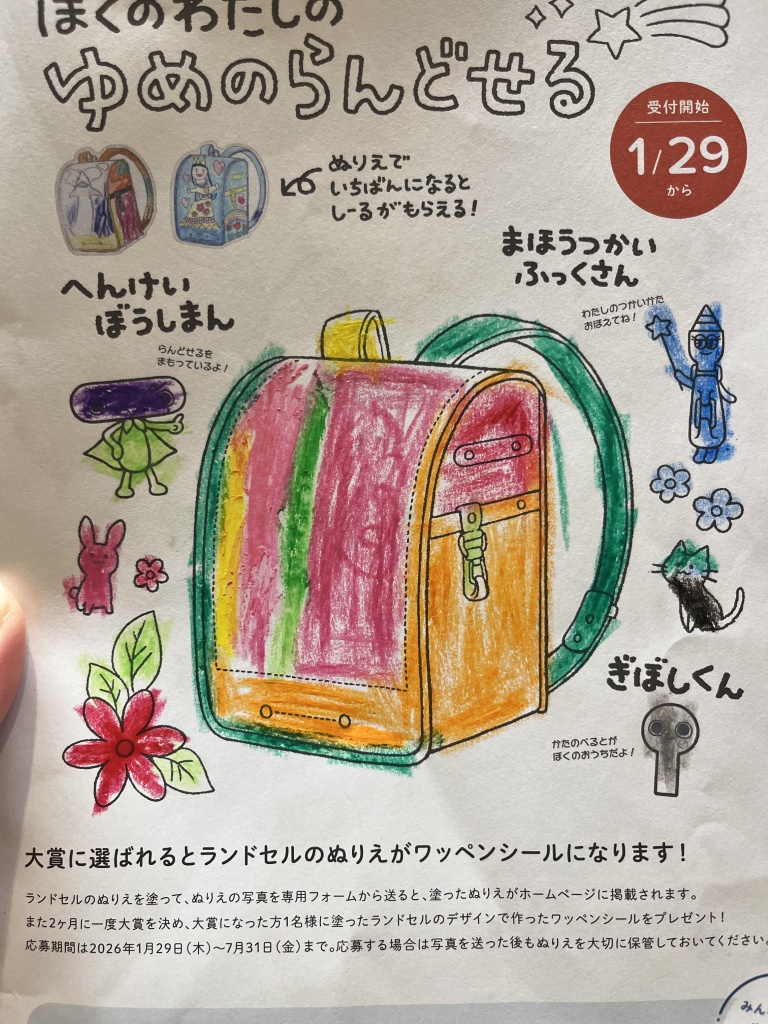 ぼくのわたしの
ゆめのらんどせる
受付開始
1/29
から
ぬりえで
いちばんになると
しーるがもらえる!
まほうつかい
ふっくさん
わたしのつかいかた
おぼえてね!
へんけい
ぼうしまん
らんどせるを
まもっているよ!
ぎぼしくん
かたのべるとが
ぼくのおうちだよ!
大賞に選ばれるとランドセルのぬりえがワッペンシールになります!
ランドセルのぬりえを塗って、ぬりえの写真を専用フォームから送ると、塗ったぬりえがホームページに掲載されます。
また2ヶ月に一度大賞を決め、大賞になった方1名様に塗ったランドセルのデザインで作ったワッペンシールをプレゼント!
応募期間は2026年1月29日(木)〜7月31日(金)まで。応募する場合は写真を送った後もぬりえを大切に保管しておいてください。
みん